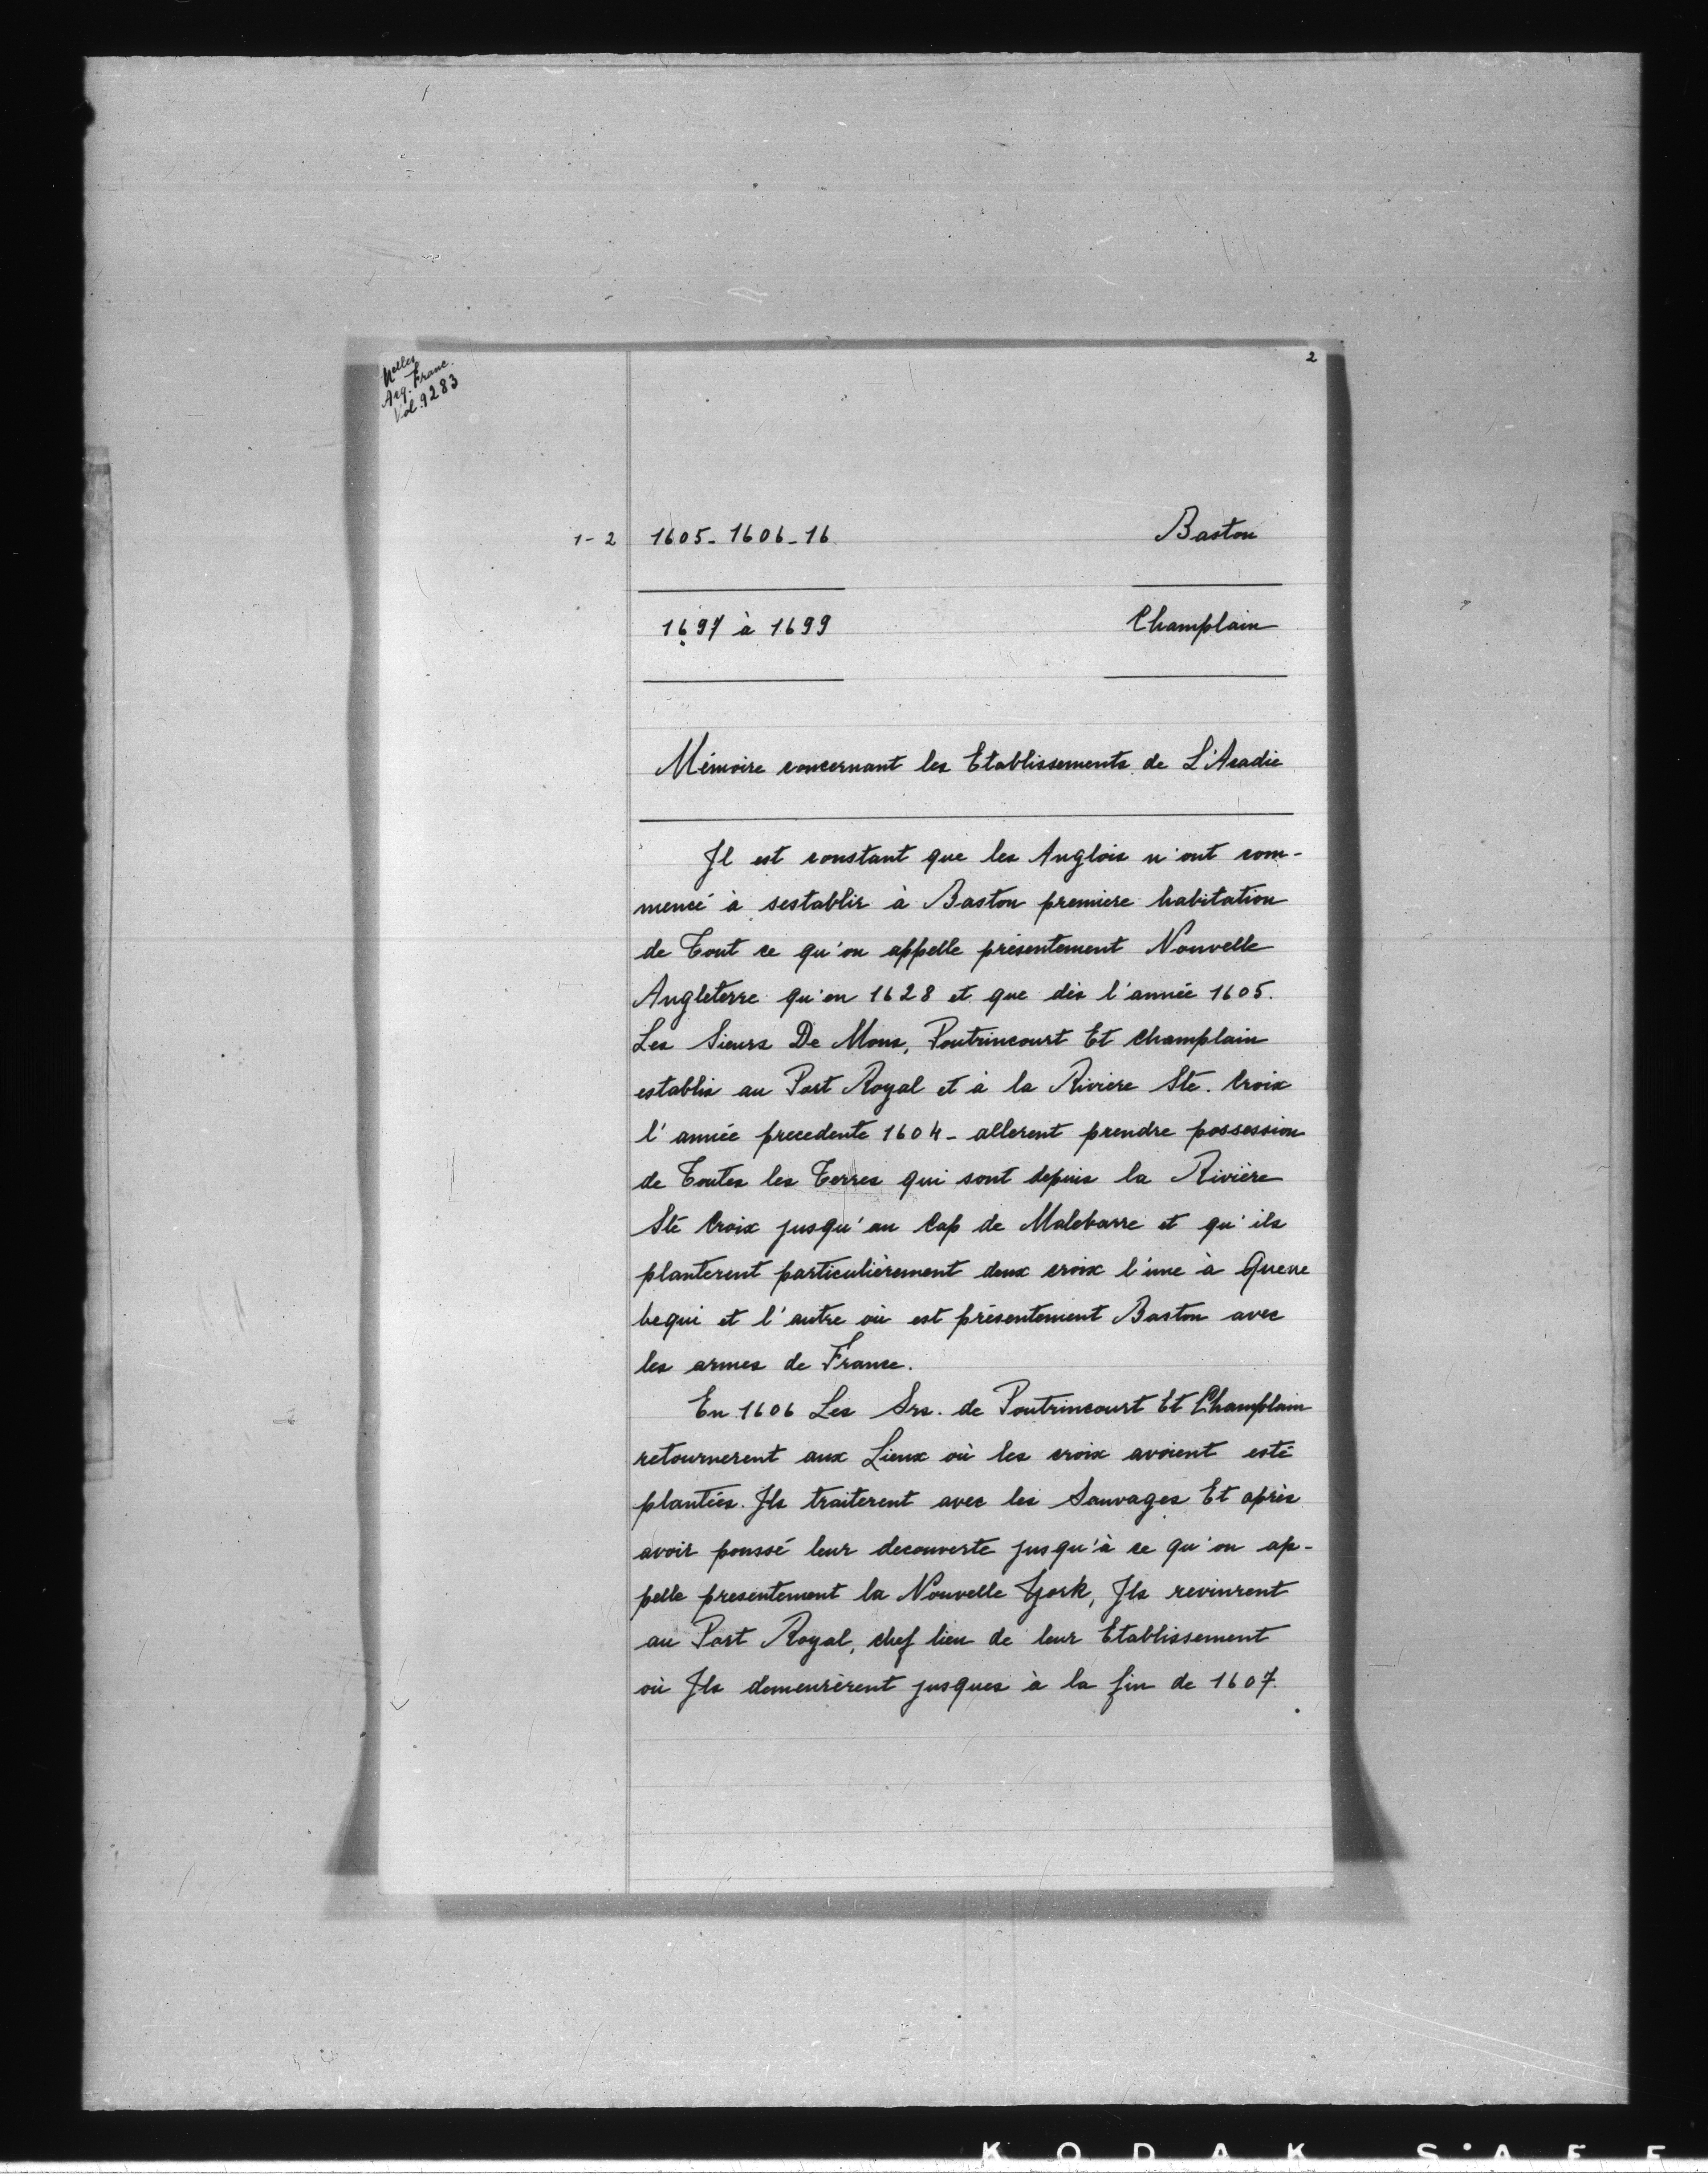 Nelles
Acq. Franc.
Vol. 9283
2
1-2 1605-1606-16 Baston
1697 à 1699 Champlain
Mémoire concernant les Etablissements de L'Acadie
Jl est constant que les Anglois n'ont com-
mencé à sestablir à Baston premiere habitation
de Tout ce qu'on appelle présentement Nouvelle
Angleterre qu'en 1628 et que dès l'année 1605.
Les Sieurs De Mons, Poutrincourt Et Champlain
establis au Port Royal et à la Riviere Ste. Croix
l'année precedente 1604 - allerent prendre possession
de Toutes les Terres qui sont depuis la Rivière
Ste Croix jusqu'au Cap de Malebarre et qu'ils
planterent particulièrement deux croix l'une à Quene
bequi et l'autre où est présentement Baston avec
les armes de France.
En 1606 Les Srs. de Poutrincourt Et Champlain
retournerent aux Lieux où les croix avoient esté
plantées. Jls traiterent avec les Sauvages Et après
avoir poussé leur decouverte jusqu'à ce qu'on ap-
pelle presentement la Nouvelle York, Jls revinrent
au Port Royal, chef lieu de leur Etablissement
où Jls demeurèrent jusques à la fin de 1607.
KODAK SAFE